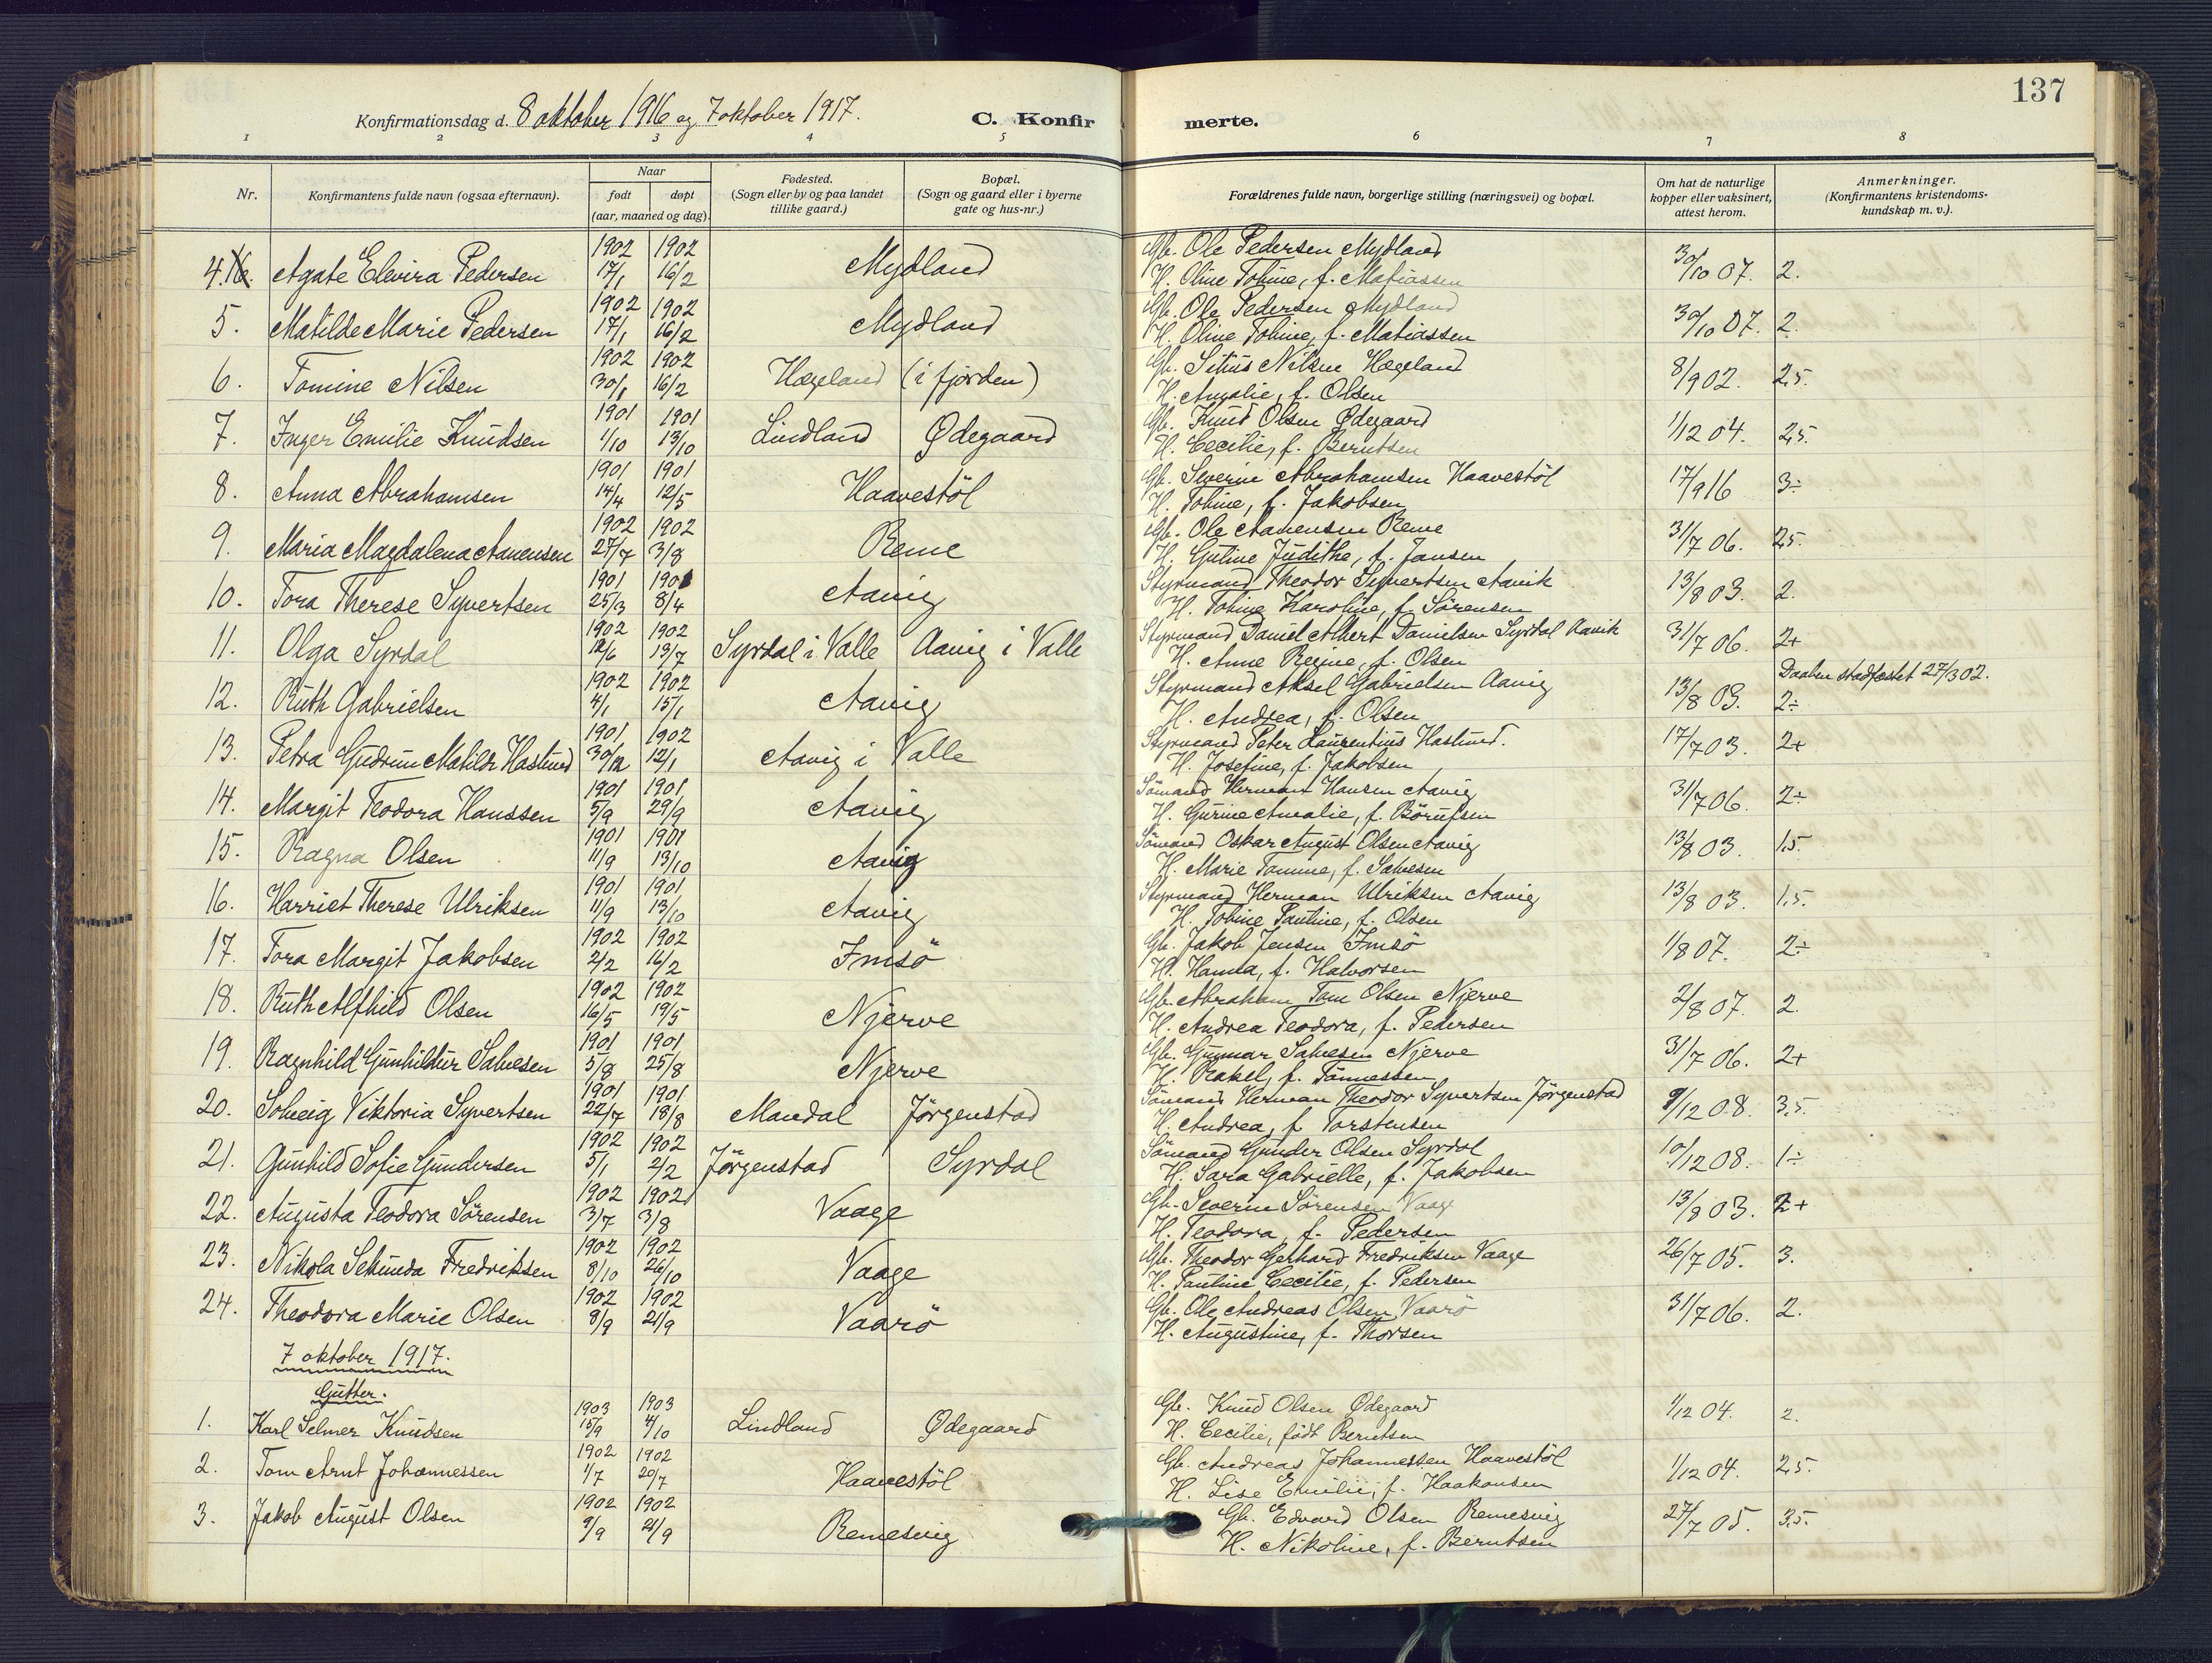 137
Konfirmationsdag d. 8 oktober 1916 og 7 oktober 1917. C. Konfir merte.
1 2 3 4 5 6 7 8
Nr. Konfirmantens fulde navn (ogsaa efternavn). Naar født døpt (aar, maaned og dag). Fødested. (Sogn eller by og paa landet tillike gaard.) Bopæl. (Sogn og gaard eller i byerne gate og hus-nr.) Forældrenes fulde navn, borgerlige stilling (næringsvei) og bopæl. Om hat de naturlige kopper eller vaksinert, attest herom. Anmerkninger. (Konfirmantens kristendoms-kundskap m. v.).
1902 1902 Gb. Ole Pedersen Mydland
4. Agate Elevira Pedersen 17/1 16/2 Mydland H. Oline Tobine, f. Matiassen 30/10 07. 2.
1902 1902 Gb. Ole Pedersen Mydland
5. Matilde Marie Pedersen 17/1 16/2 Mydland H. Oline Tobine, f. Matiassen 30/10 07. 2.
1902 1902 Gb. Sitius Nilsen Hægeland
6. Tomine Nilsen 30/1 16/2 Hægeland (i fjorden) H. Amalie, f. Olsen 8/9 02. 2,5.
1901 1901 Gb. Knud Olsen Ødegaard
7. Inger Emilie Knudsen 1/10 13/10 Lindland Ødegaard H. Cecilie, f. Berntsen 1/12 04. 2,5.
1901 1901 Gb. Severin Abrahamsen Haavestöl
8. Anna Abrahamsen 14/4 12/5 Haavestöl H. Tobine, f. Jakobsen 17/9 16 3÷
1902 1902 Gb. Ole Aanensen Reme
9. Maria Magdalena Aanensen 27/7 3/8 Reme H. Gutine Judithe, f. Jansen 31/7 06. 2,5.
1901 1901 Styrmand Theodor Syvertsen Aavik
10. Tora Therese Syvertsen 25/3 8/4 Aavig H. Tobine Karoline, f. Sörensen 13/8 03. 2.
1902 1902 Styrmand Daniel Albert Danielsen Syrdal Aavik
11. Olga Syrdal 12/6 13/7 Syrdal i Valle Aavig i Valle H. Anne Regine, f. Olsen 31/7 06. 2+
1902 1902 Styrmand Aksel Gabrielsen Aavig Daaben stadfæstet 27/3 02.
12. Ruth Gabrielsen 4/1 15/1 Aavig H. Andrea, f. Olsen 13/8 03. 2÷
1901 1902 Styrmand Peter Laurentius Haslund.
13. Petra Gudrun Matilde Haslund 30/12 12/1 Aavig i Valle H. Josefine, f. Jakobsen 17/7 03. 2+
1901 1901 Sömand Herman Hansen Aavig
14. Margit Teodora Hanssen 5/9 29/9 Aavig H. Gurine Amalie, f. Börufsen 31/7 06. 2÷
1901 1901 Sömand Oskar August Olsen Aavig
15. Ragna Olsen 11/9 13/10 Aavig H. Marie Tomine, f. Salvesen 13/8 03. 1,5.
1901 1901 Styrmand Herman Ulriksen Aavig
16. Harriet Therese Ulriksen 11/9 13/10 Aavig H. Tobine Pauline, f. Olsen 13/8 03. 1,5.
1902 1902 Gb. Jakob Jensen Imsö
17. Tora Margit Jakobsen 2/2 16/2 Imsö H. Hanna, f. Halvorsen 1/8 07. 2÷
1902 1902 Gb. Abraham Tom Olsen Njerve
18. Ruth Alfhild Olsen 16/5 19/5 Njerve H. Andrea Teodora, f. Pedersen 2/8 07. 2.
1901 1901 Gb. Gunnar Salvesen Njerve
19. Ragnhild Gunhildur Salvesen 5/8 25/8 Njerve H. Rakel, f. Tönnessen 31/7 06. 2+
1901 1901 Sömand Herman Theodor Syvertsen Jörgenstad
20. Solveig Viktoria Syvertsen 22/7 18/8 Mandal Jörgenstad H. Andrea, f. Torstensen 9/12 08. 3,5.
1902 1902 Sömand Gunder Olsen Syrdal
21. Gunhild Sofie Gundersen 5/1 2/2 Jörgenstad Syrdal H. Sara Gabrielle, f. Jakobsen 10/12 08. 1÷
1902 1902 Gb. Severin Sörensen Vaage
22. Augusta Teodora Sörensen 3/7 3/8 Vaage H. Teodora, f. Pedersen 13/8 03. 2+
1902 1902 Gb. Theodor Gerhard Fredriksen Vaage
23. Nikola Sekunda Fredriksen 8/10 26/10 Vaage H. Pauline Cecilie, f. Pedersen 26/7 05. 3.
1902 1902 Gb. Ole Andreas Olsen Vaarö
24. Theodora Marie Olsen 8/9 21/9 Vaarö H. Augustine, f. Thorsen 31/7 06. 2.
7 oktober 1917.
Gutter.
1903 1903 Gb. Knud Olsen Ødegaard
1. Karl Selmer Knudsen 15/9 4/10 Lindland Ødegaard H. Cecilie, født Berntsen 1/12 04. 2.
1902 1902 Gb. Andreas Johannessen Haavestöl
2. Tom Arnt Johannessen 1/7 20/7 Haavestöl H. Lise Emilie, f. Haakonsen 1/12 04. 2,5.
1902 1902 Gb. Edvard Olsen Remesvig
3. Jakob August Olsen 9/9 21/9 Remesvig H. Nikoline, f. Berntsen 27/7 05. 3,5.